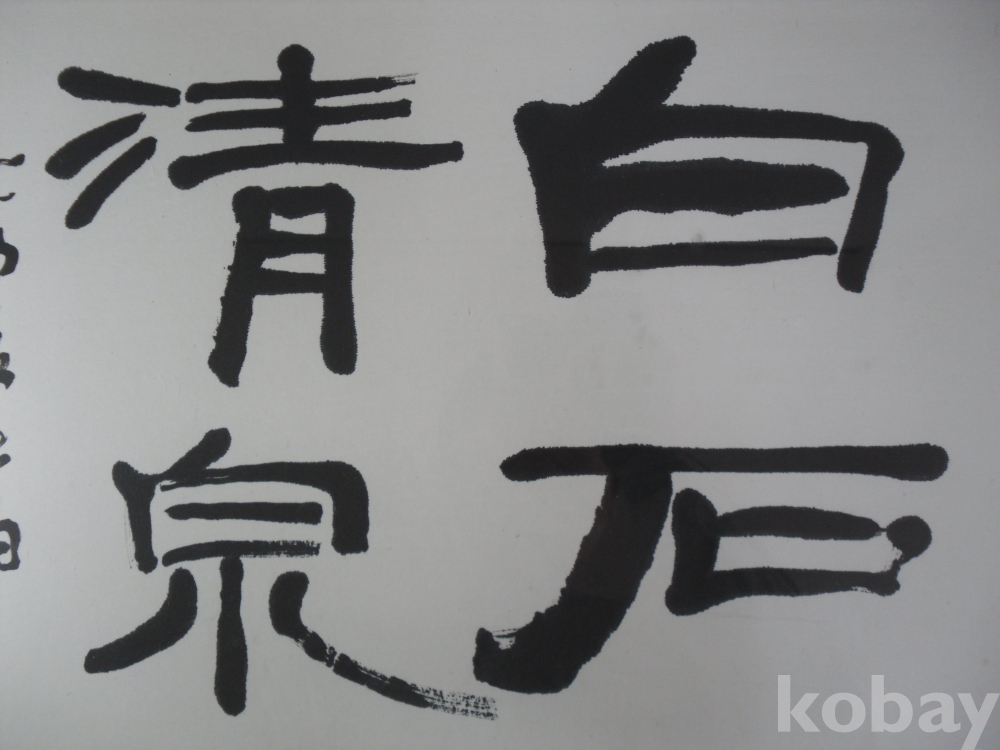 白石
清泉
kobay